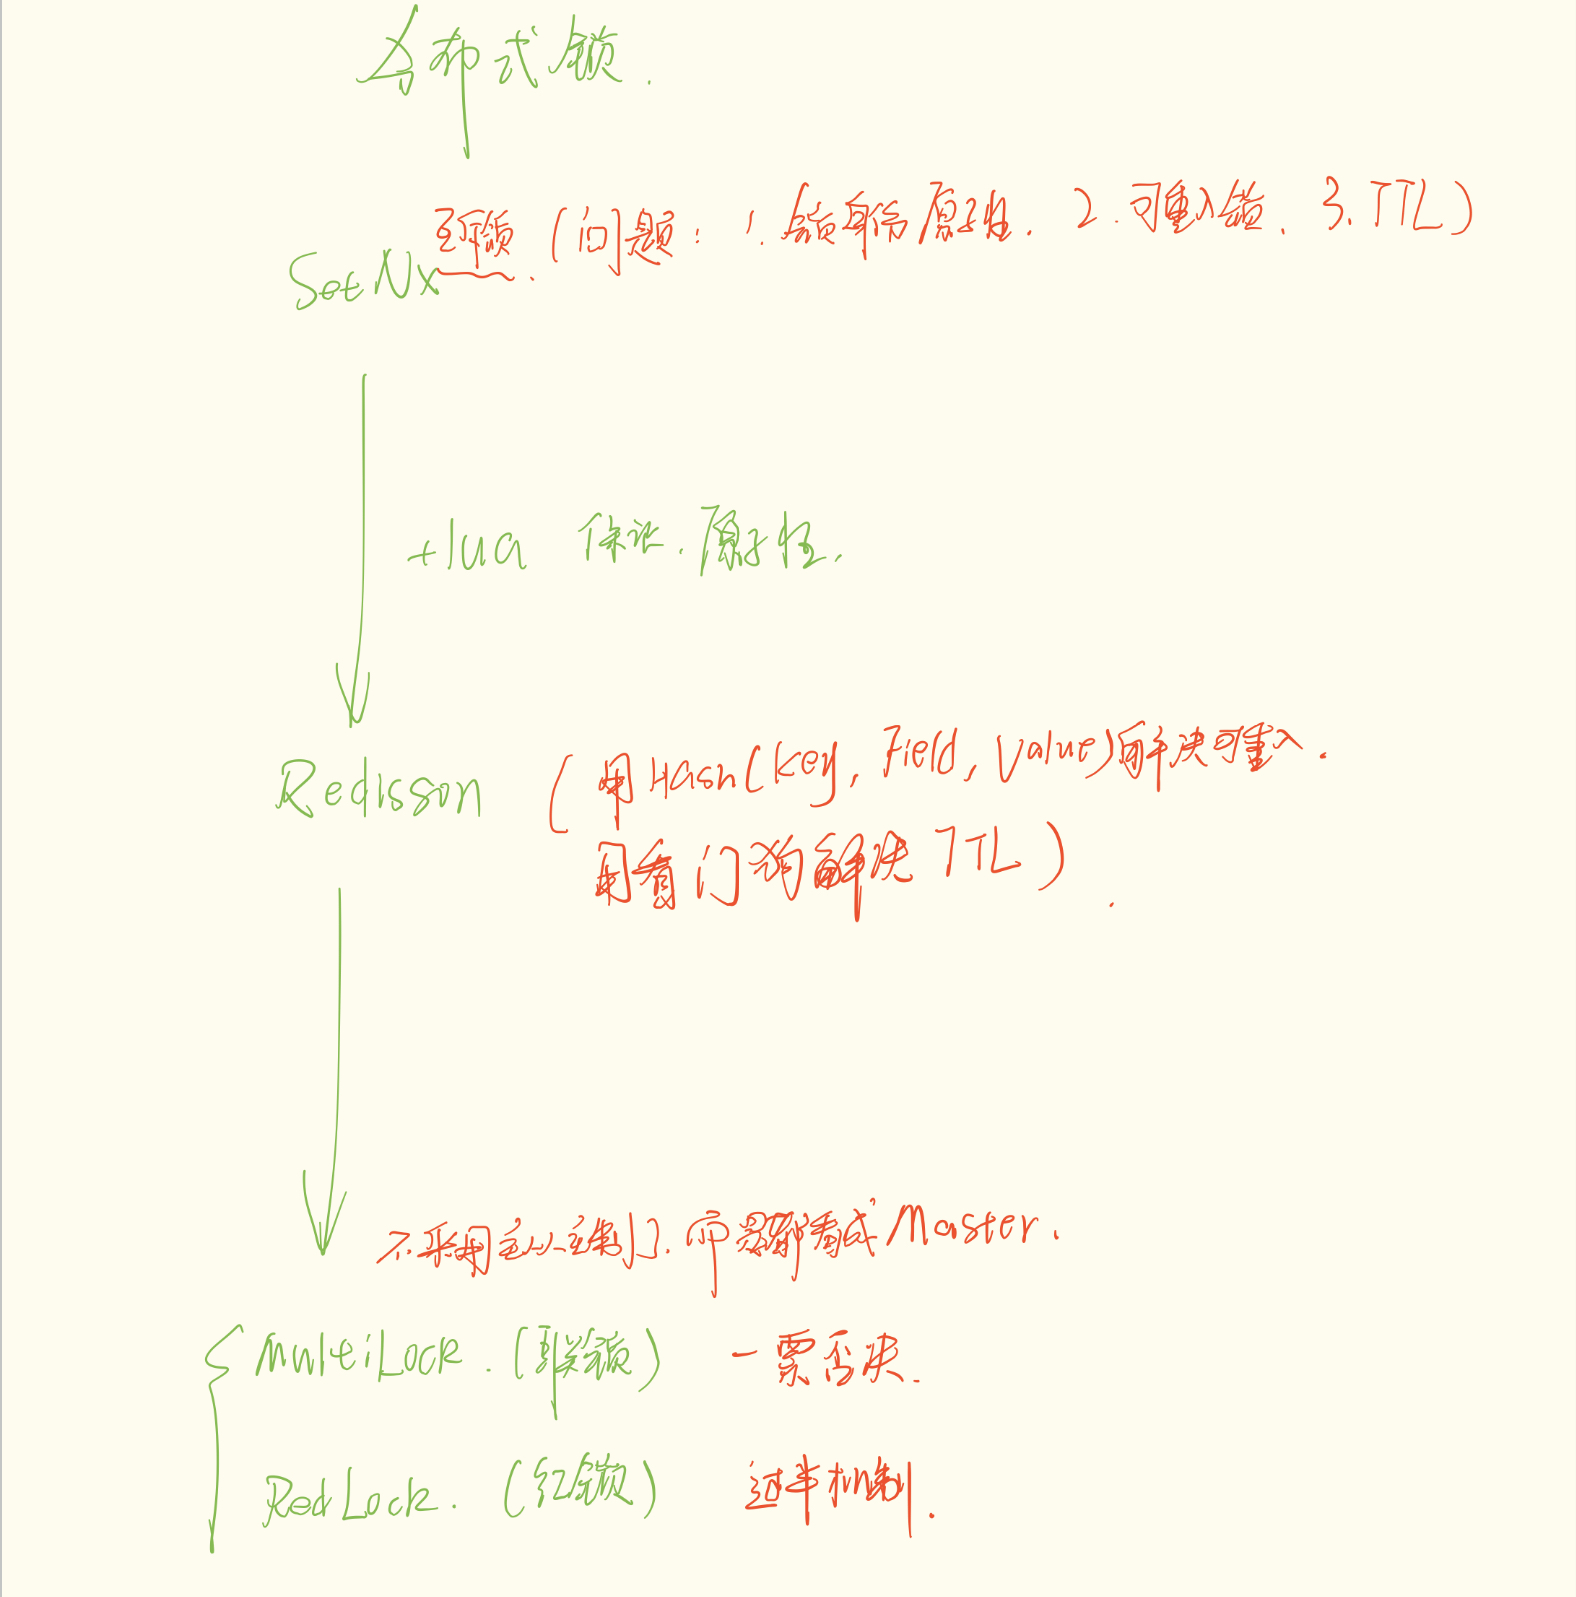 分布式锁.
SetNx 互斥锁.(问题: 1.锁身份原子性. 2.可重入锁. 3.TTL)
+lua 保证.原子性.
Redisson (用Hash(Key, Field, Value)解决可重入.
用看门狗解决TTL).
不采用主从机制了.而是都看成Master.
MultiLock.(联锁) 一票否决.
RedLock.(红锁) 过半机制.